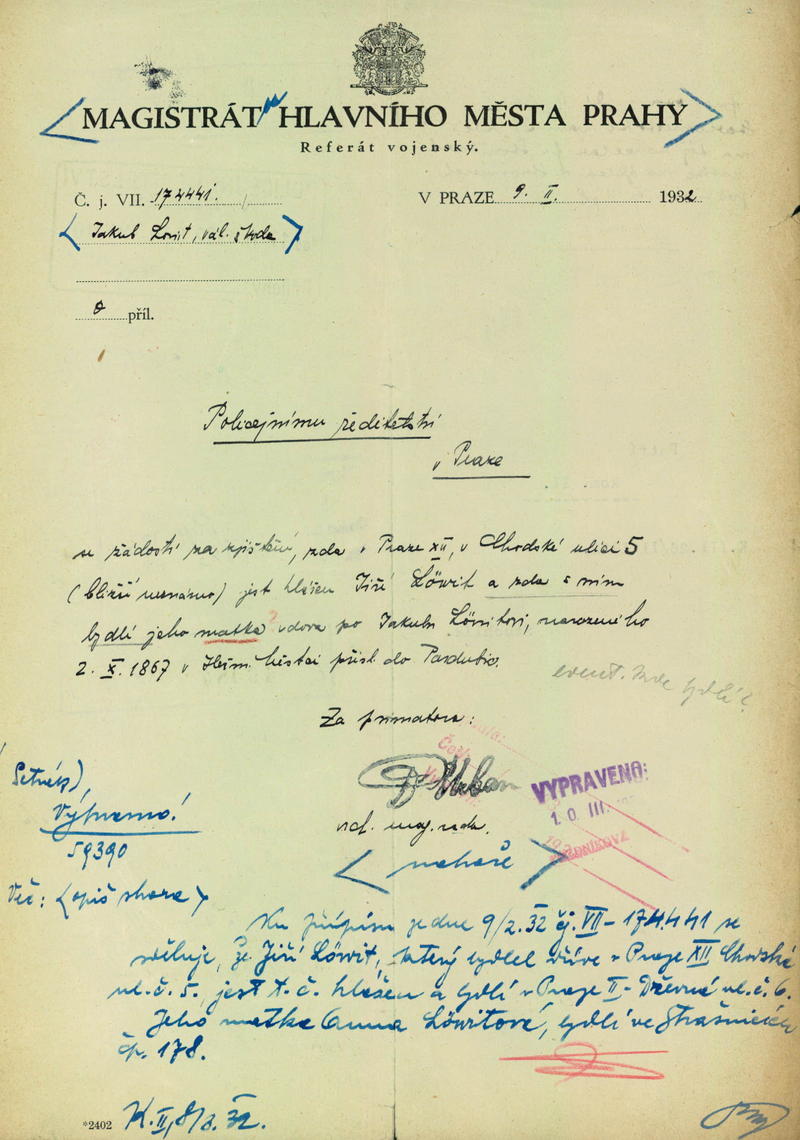 MAGISTRÁT HLAVNÍHO MĚSTA PRAHY
Referát vojenský.
Č. j. VII. 174441. /
V PRAZE 9. II. 1932
Jakub Löwit, vál. škoda
0 příl.
Policejnímu ředitelství
v Praze
se žádostí za zjištění, zda v Praze XII, v Chodské ulici 5
(bližší neznámo) jest hlášen Jiří Löwit a zda s ním
bydlí jeho matka ? vdova po Jakubu Löwitovi, narozeného
2. X. 1867 v Heřm. Městci přísl. do Pardubic.
event. kde bydlí?
Za primátora:
vrch. mag. rada.
VYPRAVENO:
10. III.
nahoře
Výtvarno!
59390
Věc: (opiš shora)
Ku přípisu ze dne 9/2. 32 čj. VII - 174.441 se
sděluje, že Jiří Löwit, který bydlel dříve v Praze XII Chodská
ul. č. 5., jest t. č. hlášen a bydlí v Praze II - Dřevná ul. č. 6.
Jeho matka Anna Löwitová, bydlí ve Strašnicích
čp. 178.
*2402 K. II, 8/3. 32.